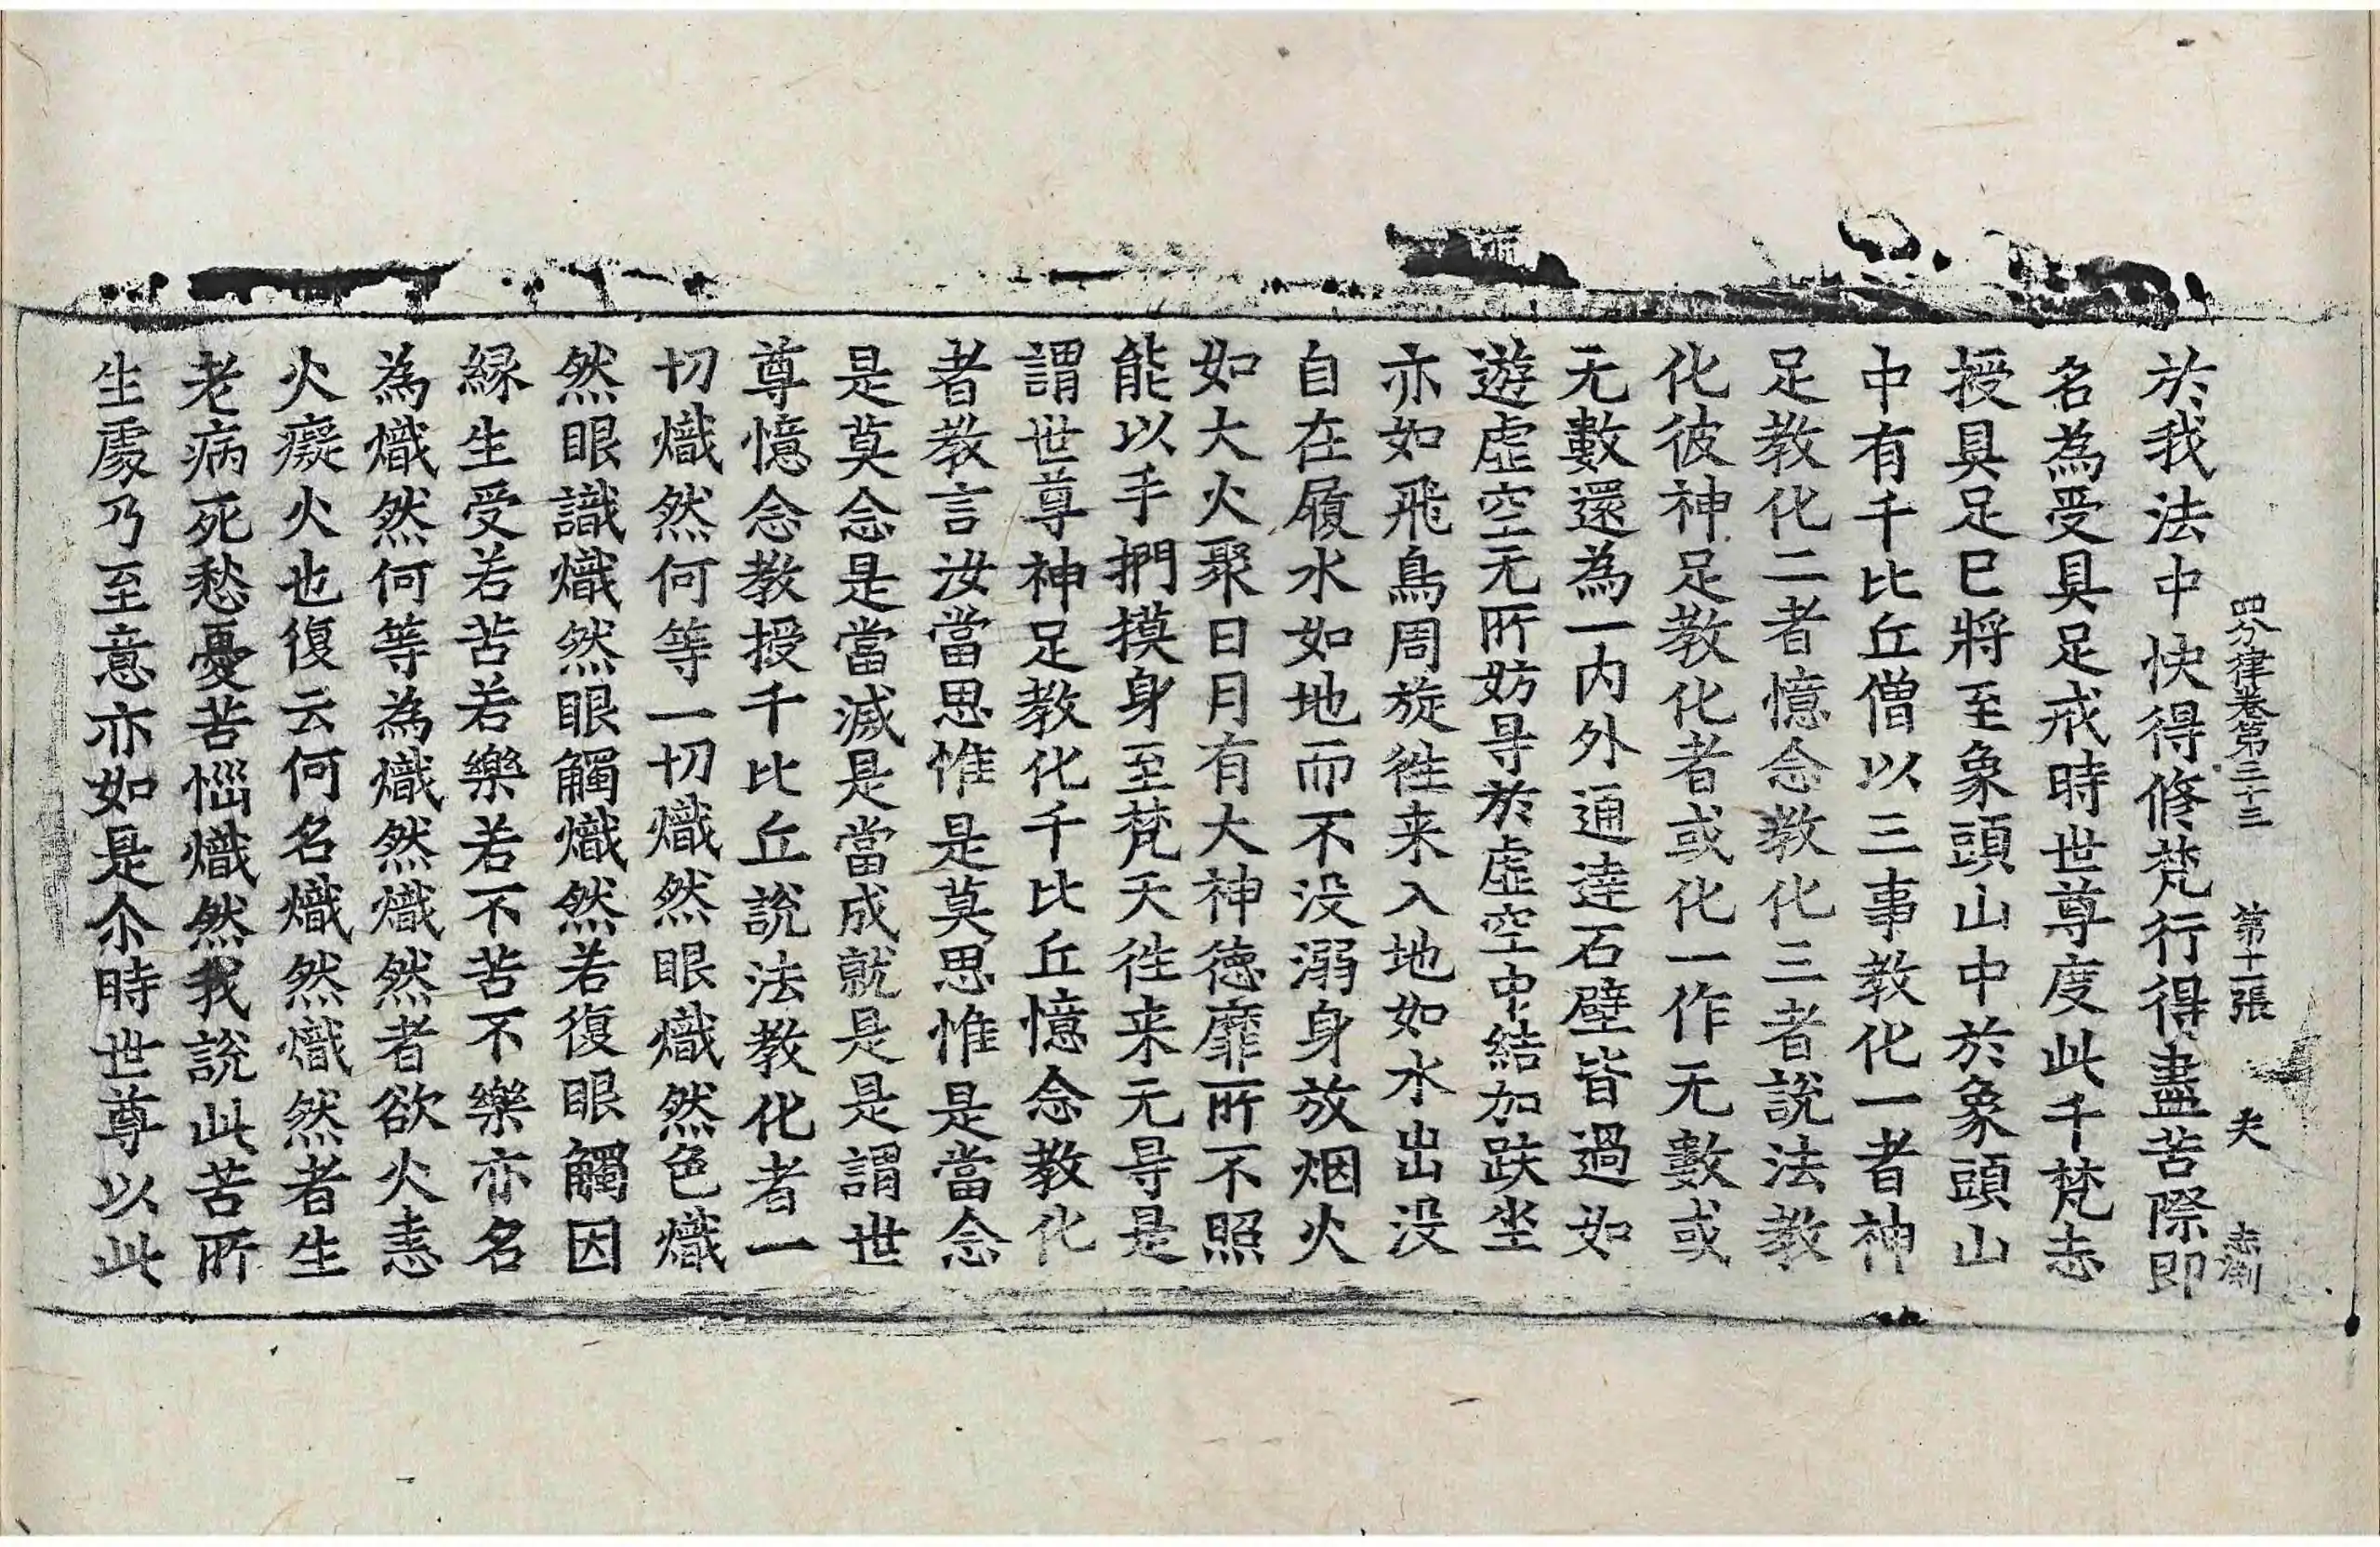 四分律卷第三十三 第十二張 夫
於我法中快得修梵行得盡苦際即
名為受具足戒時世尊度此千梵志
授具足已將至象頭山中於象頭山
中有千比丘僧以三事教化一者神
足教化二者憶念教化三者說法教
化彼神足教化者或化一作无數或
无數還為一内外通達石壁皆過如
遊虛空无所妨㝵於虛空中結加趺坐
亦如飛鳥周旋徃来入地如水出没
自在履水如地而不没溺身放烟火
如大火聚日月有大神德靡所不照
能以手捫摸身至梵天徃来无㝵是
謂世尊神足教化千比丘憶念教化
者教言汝當思惟是莫思惟是當念
是莫念是當滅是當成就是是謂世
尊憶念教授千比丘說法教化者一
切熾然何等一切熾然眼熾然色熾
然眼識熾然眼觸熾然若復眼觸因
縁生受若苦若樂若不苦不樂亦名
為熾然何等為熾然熾然者欲火恚
火癡火也復云何名熾然熾然者生
老病死愁憂苦惱熾然我說此苦所
生處乃至意亦如是尒時世尊以此